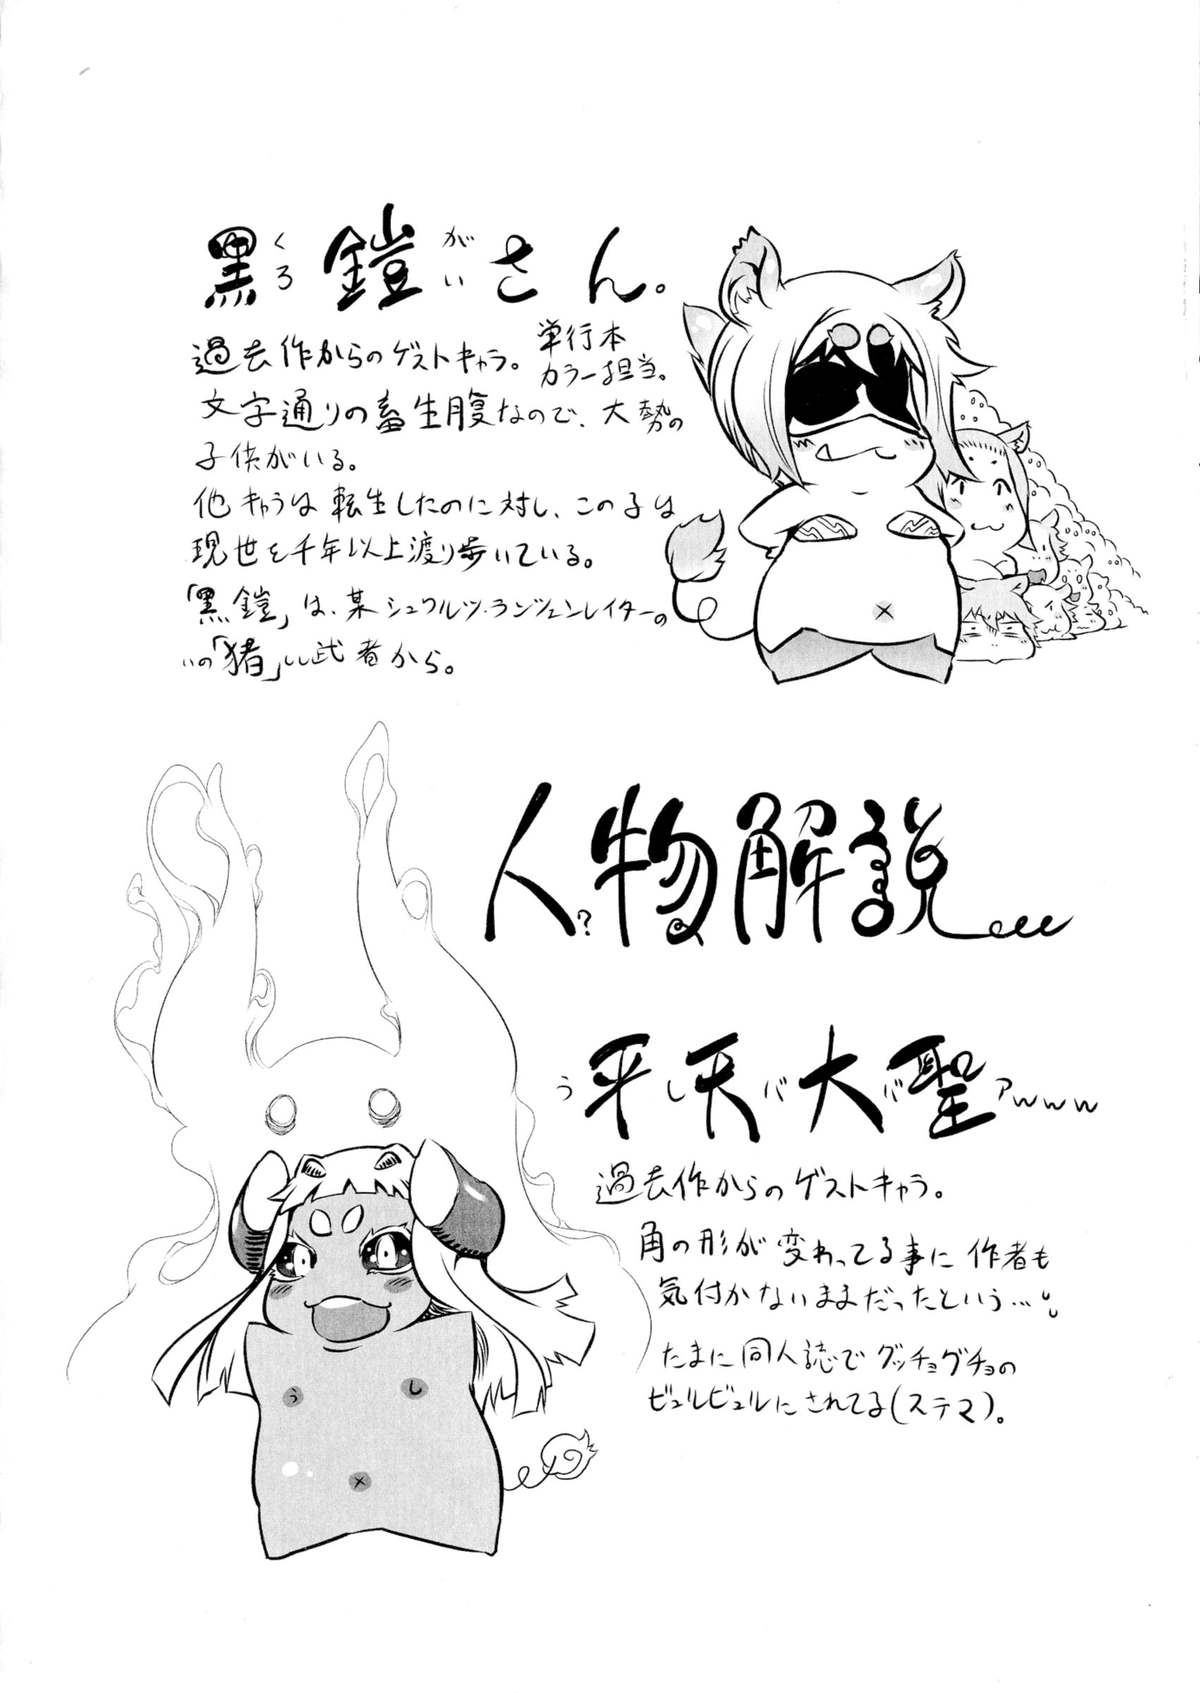 黒鎧さん。
くろ がい
過去作からのゲストキャラ。
単行本
カラー担当。
文字通りの畜生腹なので、大勢の
子供がいる。
他キャラは転生したのに対し、この子は
現世を千年以上渡り歩いている。
「黒鎧」は、某シュワルツ・ランツェンレイターの
いの「猪」い武者から。
人物解説
?
平天大聖
うしババアwww
過去作からのゲストキャラ。
角の形が変わってる事に作者も
気付かないままだったという…。
たまに同人誌でグッチョグチョの
ビュルビュルにされてる(ステマ)。
う
し